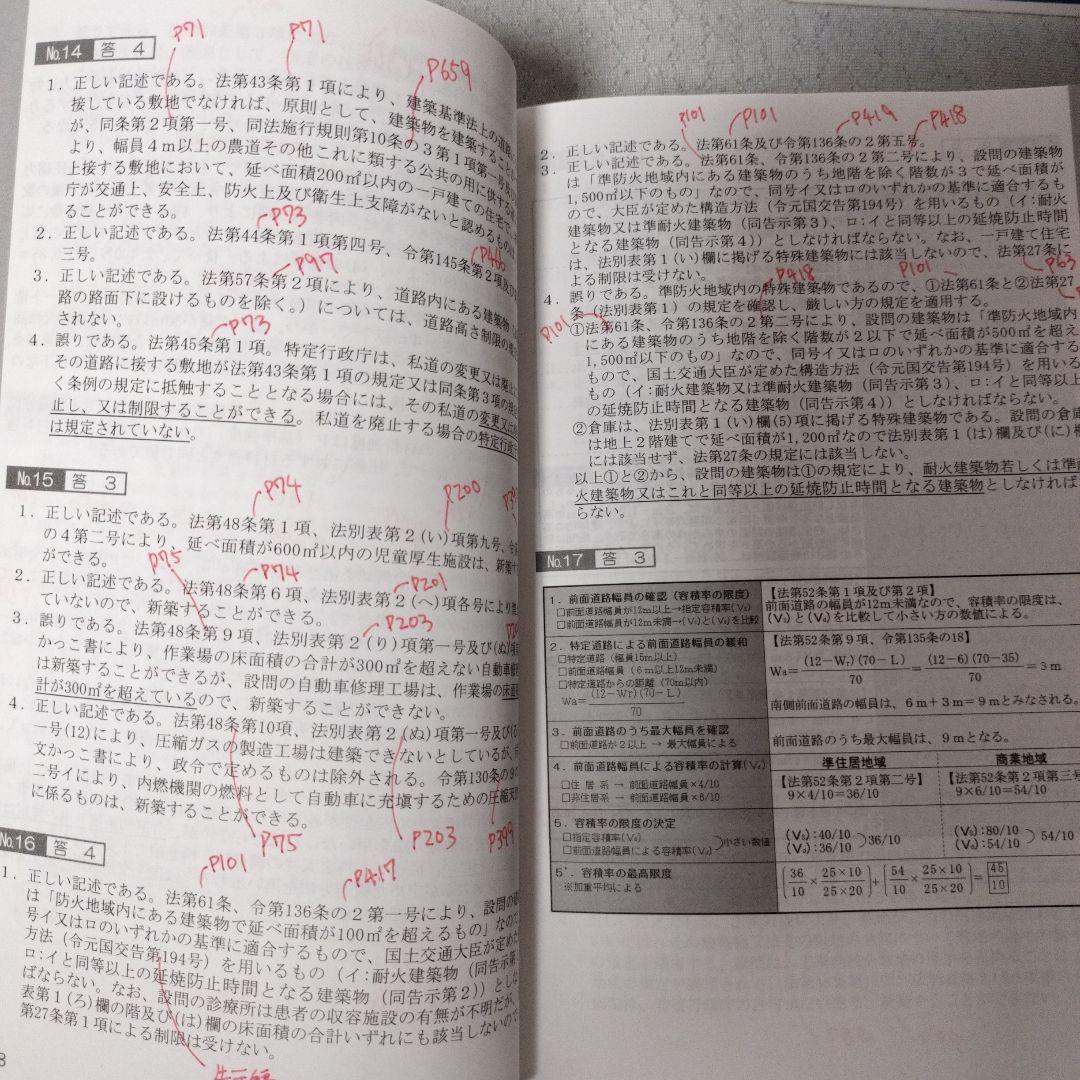 P71
P71
P659
No.14 答 4
1．正しい記述である。法第43条第1項により、建築基準法上の道路に
接している敷地でなければ、原則として、建築物を建築すること
が、同条第2項第一号、同法施行規則第10条の3第1項第一号及び
より、幅員4m以上の農道その他これに類する公共の用に供する道
上接する敷地において、延べ面積200㎡以内の一戸建ての住宅で、
庁が交通上、安全上、防火上及び衛生上支障がないと認めるものは
ることができる。
P73
2．正しい記述である。法第44条第1項第四号、令第145条第2項及び
三号。
P97
P466
3．正しい記述である。法第57条第2項により、道路内にある建築物
路の路面下に設けるものを除く。）については、道路高さ制限の
されない。
P73
4．誤りである。法第45条第1項。特定行政庁は、私道の変更又は廃止
その道路に接する敷地が法第43条第1項の規定又は同条第3項の
く条例の規定に抵触することとなる場合には、その私道の変更又は
止し、又は制限することができる。私道を廃止する場合の特定行政
は規定されていない。
No.15 答 3
P74
P200
1．正しい記述である。法第48条第1項、法別表第2(い)項第九号、令
の4第二号により、延べ面積が600㎡以内の児童厚生施設は、新築す
ができる。
P75
P74
P201
2．正しい記述である。法第48条第6項、法別表第2(へ)項各号により
ていないので、新築することができる。
P203
3．誤りである。法第48条第9項、法別表第2(り)項第一号及び(ぬ)項
かっこ書により、作業場の床面積の合計が300㎡を超えない自動車修
は新築することができるが、設問の自動車修理工場は、作業場の床面
計が300㎡を超えているので、新築することができない。
4．正しい記述である。法第48条第10項、法別表第2(ぬ)項第一号及び
一号(12)により、圧縮ガスの製造工場は建築できないとしているが、
文かっこ書により、政令で定めるものは除外される。令第130条の9の
二号イにより、内燃機関の燃料として自動車に充塡するための圧縮天
に係るものは、新築することができる。
P75
P203
P399
No.16 答 4
P101
P417
1．正しい記述である。法第61条、令第136条の2第一号により、設問の
は「防火地域内にある建築物で延べ面積が100㎡を超えるもの」なので
号イ又はロのいずれかの基準に適合するもので、国土交通大臣が定めた
方法（令元国交告第194号）を用いるもの（イ：耐火建築物（同告示第
ロ：イと同等以上の延焼防止時間となる建築物（同告示第2））とし
ばならない。なお、設問の診療所は患者の収容施設の有無が不明だが、
表第1(ろ)欄の階及び(は)欄の床面積の合計いずれにも該当しないので
第27条第1項による制限は受けない。
8
P101
P101
P419
P418
2．正しい記述である。法第61条及び令第136条の2第五号。
3．正しい記述である。法第61条、令第136条の2第二号により、設問の建築物
は「準防火地域内にある建築物のうち地階を除く階数が3で延べ面積が
1,500㎡以下のもの」なので、同号イ又はロのいずれかの基準に適合するも
ので、大臣が定めた構造方法（令元国交告第194号）を用いるもの（イ：耐火
建築物又は準耐火建築物（同告示第3）、ロ：イと同等以上の延焼防止時間
となる建築物（同告示第4））としなければならない。なお、一戸建て住宅
は、法別表第1(い)欄に掲げる特殊建築物には該当しないので、法第27条に
よる制限は受けない。
P418
P101
P63
4．誤りである。準防火地域内の特殊建築物であるので、①法第61条と②法第27
条（法別表第1）の規定を確認し、厳しい方の規定を適用する。
P101
①法第61条、令第136条の2第二号により、設問の建築物は「準防火地域内
にある建築物のうち地階を除く階数が2以下で延べ面積が500㎡を超え
1,500㎡以下のもの」なので、同号イ又はロのいずれかの基準に適合する
もので、国土交通大臣が定めた構造方法（令元国交告第194号）を用いる
もの（イ：耐火建築物又は準耐火建築物（同告示第3）、ロ：イと同等以上
の延焼防止時間となる建築物（同告示第4））としなければならない。
②倉庫は、法別表第1(い)欄(5)項に掲げる特殊建築物である。設問の倉庫
は地上2階建てで延べ面積が1,200㎡なので法別表第1(は)欄及び(に)欄
には該当せず、法第27条の規定には該当しない。
以上①と②から、設問の建築物は①の規定により、耐火建築物若しくは準耐
火建築物又はこれと同等以上の延焼防止時間となる建築物としなければな
らない。
No.17 答 3
1．前面道路幅員の確認（容積率の限度）
□前面道路幅員が12m以上→指定容積率(Vs)
□前面道路幅員が12m未満→(Vs)と(Vd)を比較
【法第52条第1項及び第2項】
前面道路の幅員が12m未満なので、容積率の限度は、
(Vs)と(Vd)を比較して小さい方の数値による。
2．特定道路による前面道路幅員の緩和
□特定道路（幅員15m以上）
□前面道路幅員（6m以上12m未満）
□特定道路からの距離（70m以内）
Wa=(12-Wr)(70-L)/70
【法第52条第9項、令第135条の18】
Wa=(12-Wr)(70-L)/70=(12-6)(70-35)/70=3m
南側前面道路の幅員は、6m+3m=9mとみなされる。
3．前面道路のうち最大幅員を確認
□前面道路が2以上 → 最大幅員による
前面道路のうち最大幅員は、9mとなる。
4．前面道路幅員による容積率の計算(Vd)
□住 居 系 → 前面道路幅員×4/10
□非住居系 → 前面道路幅員×6/10
準住居地域
【法第52条第2項第二号】
9×4/10=36/10
商業地域
【法第52条第2項第三号】
9×6/10=54/10
5．容積率の限度の決定
□指定容積率(Vs)
□前面道路幅員による容積率(Vd)
小さい数値
(Vs):40/10
(Vd):36/10
36/10
(Vs):80/10
(Vd):54/10
54/10
5'．容積率の最高限度
※加重平均による
(36/10×25×10/25×20)+(54/10×25×10/25×20)=45/10